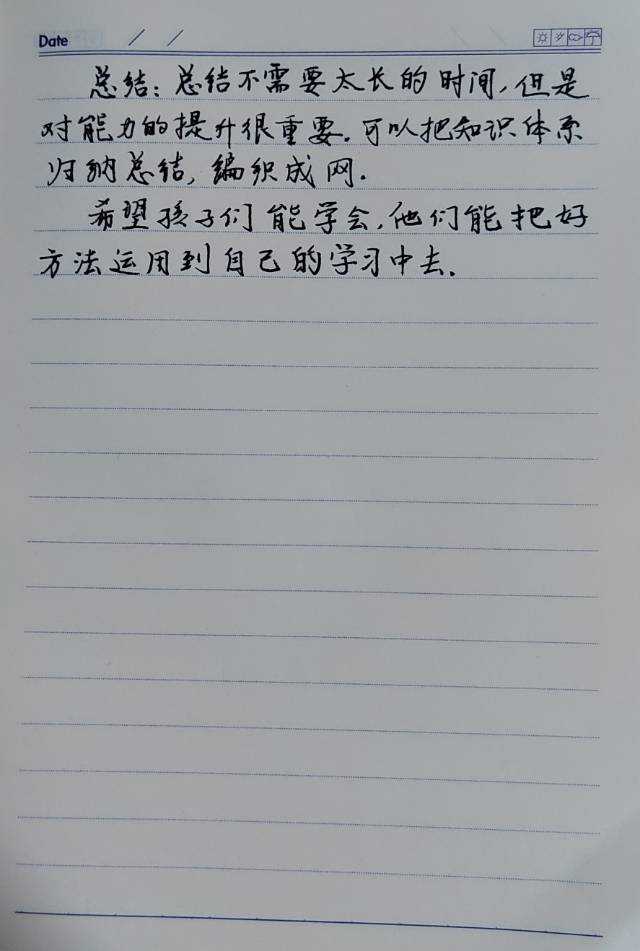 Date / /
总结：总结不需要太长的时间，但是
对能力的提升很重要。可以把知识体系
归纳总结，编织成网。
希望孩子们能学会，他们能把好
方法运用到自己的学习中去。